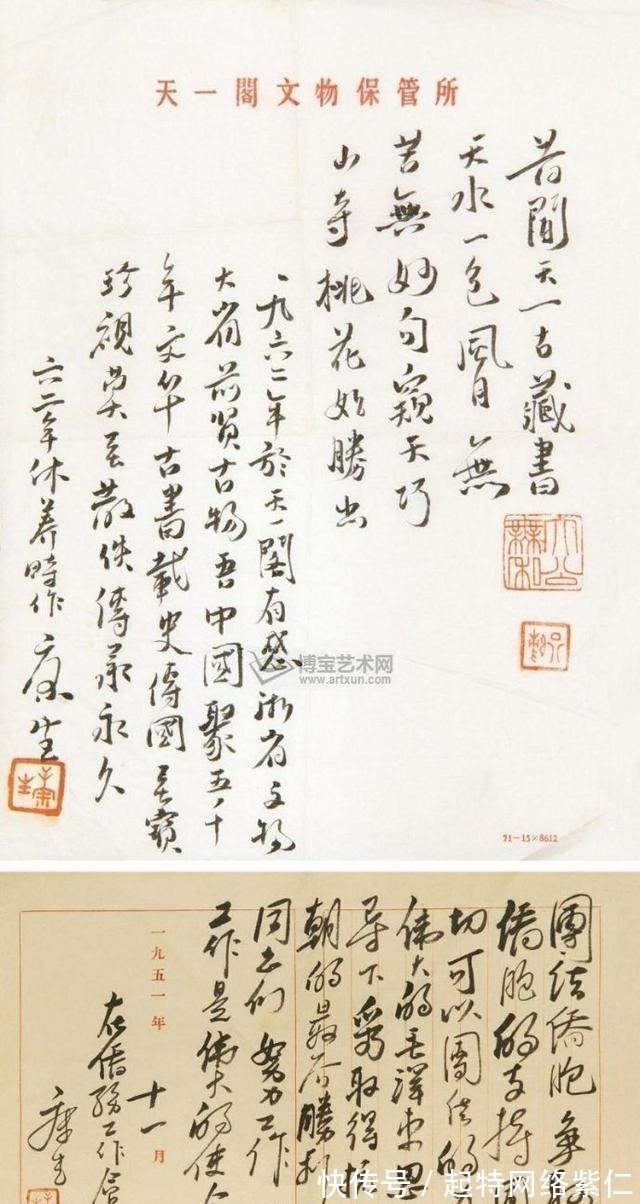 天一閣文物保管所
昔聞天一古藏書
天水一色風月無
苦無妙句窺天巧
山寺桃花始勝出
一九六二年於天一閣有感浙省文物
大省前賢古物吾中國聚五千
年文華古書載史傳國至寶
珍視莫至散佚傳承永久
六二年休養時作 康生
博宝艺术网
www.artxun.com
71-15×8612
團結僑胞
僑胞的支持
切可以團結的
偉大的毛澤東思
导下爭取得
朝的最后勝利
同志们 努力工作
工作是偉大的使
一九五一年 十一月
在僑務工作會
康生
快传号／起特网络紫仁